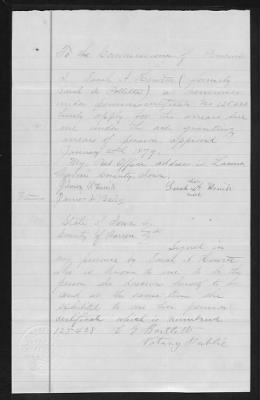 To the Commissioner of Pensions
I Sarah A (formerly
Sarah A Follett) a pensioner
under pension certificate No 125.438
hereby apply for the arrears due
me under the act granting
arrears of pension approved
January 25th 1879.
My Post Office address is
Warren County, Iowa.
her
Sarah A
mark
State of Iowa
County of Warren
Signed in
my presence by Sarah A
who is known to me to be the
person she
and at the same time she
exhibited to me her pension
certificate which is numbered
125.438 Bartlett
Notary Public